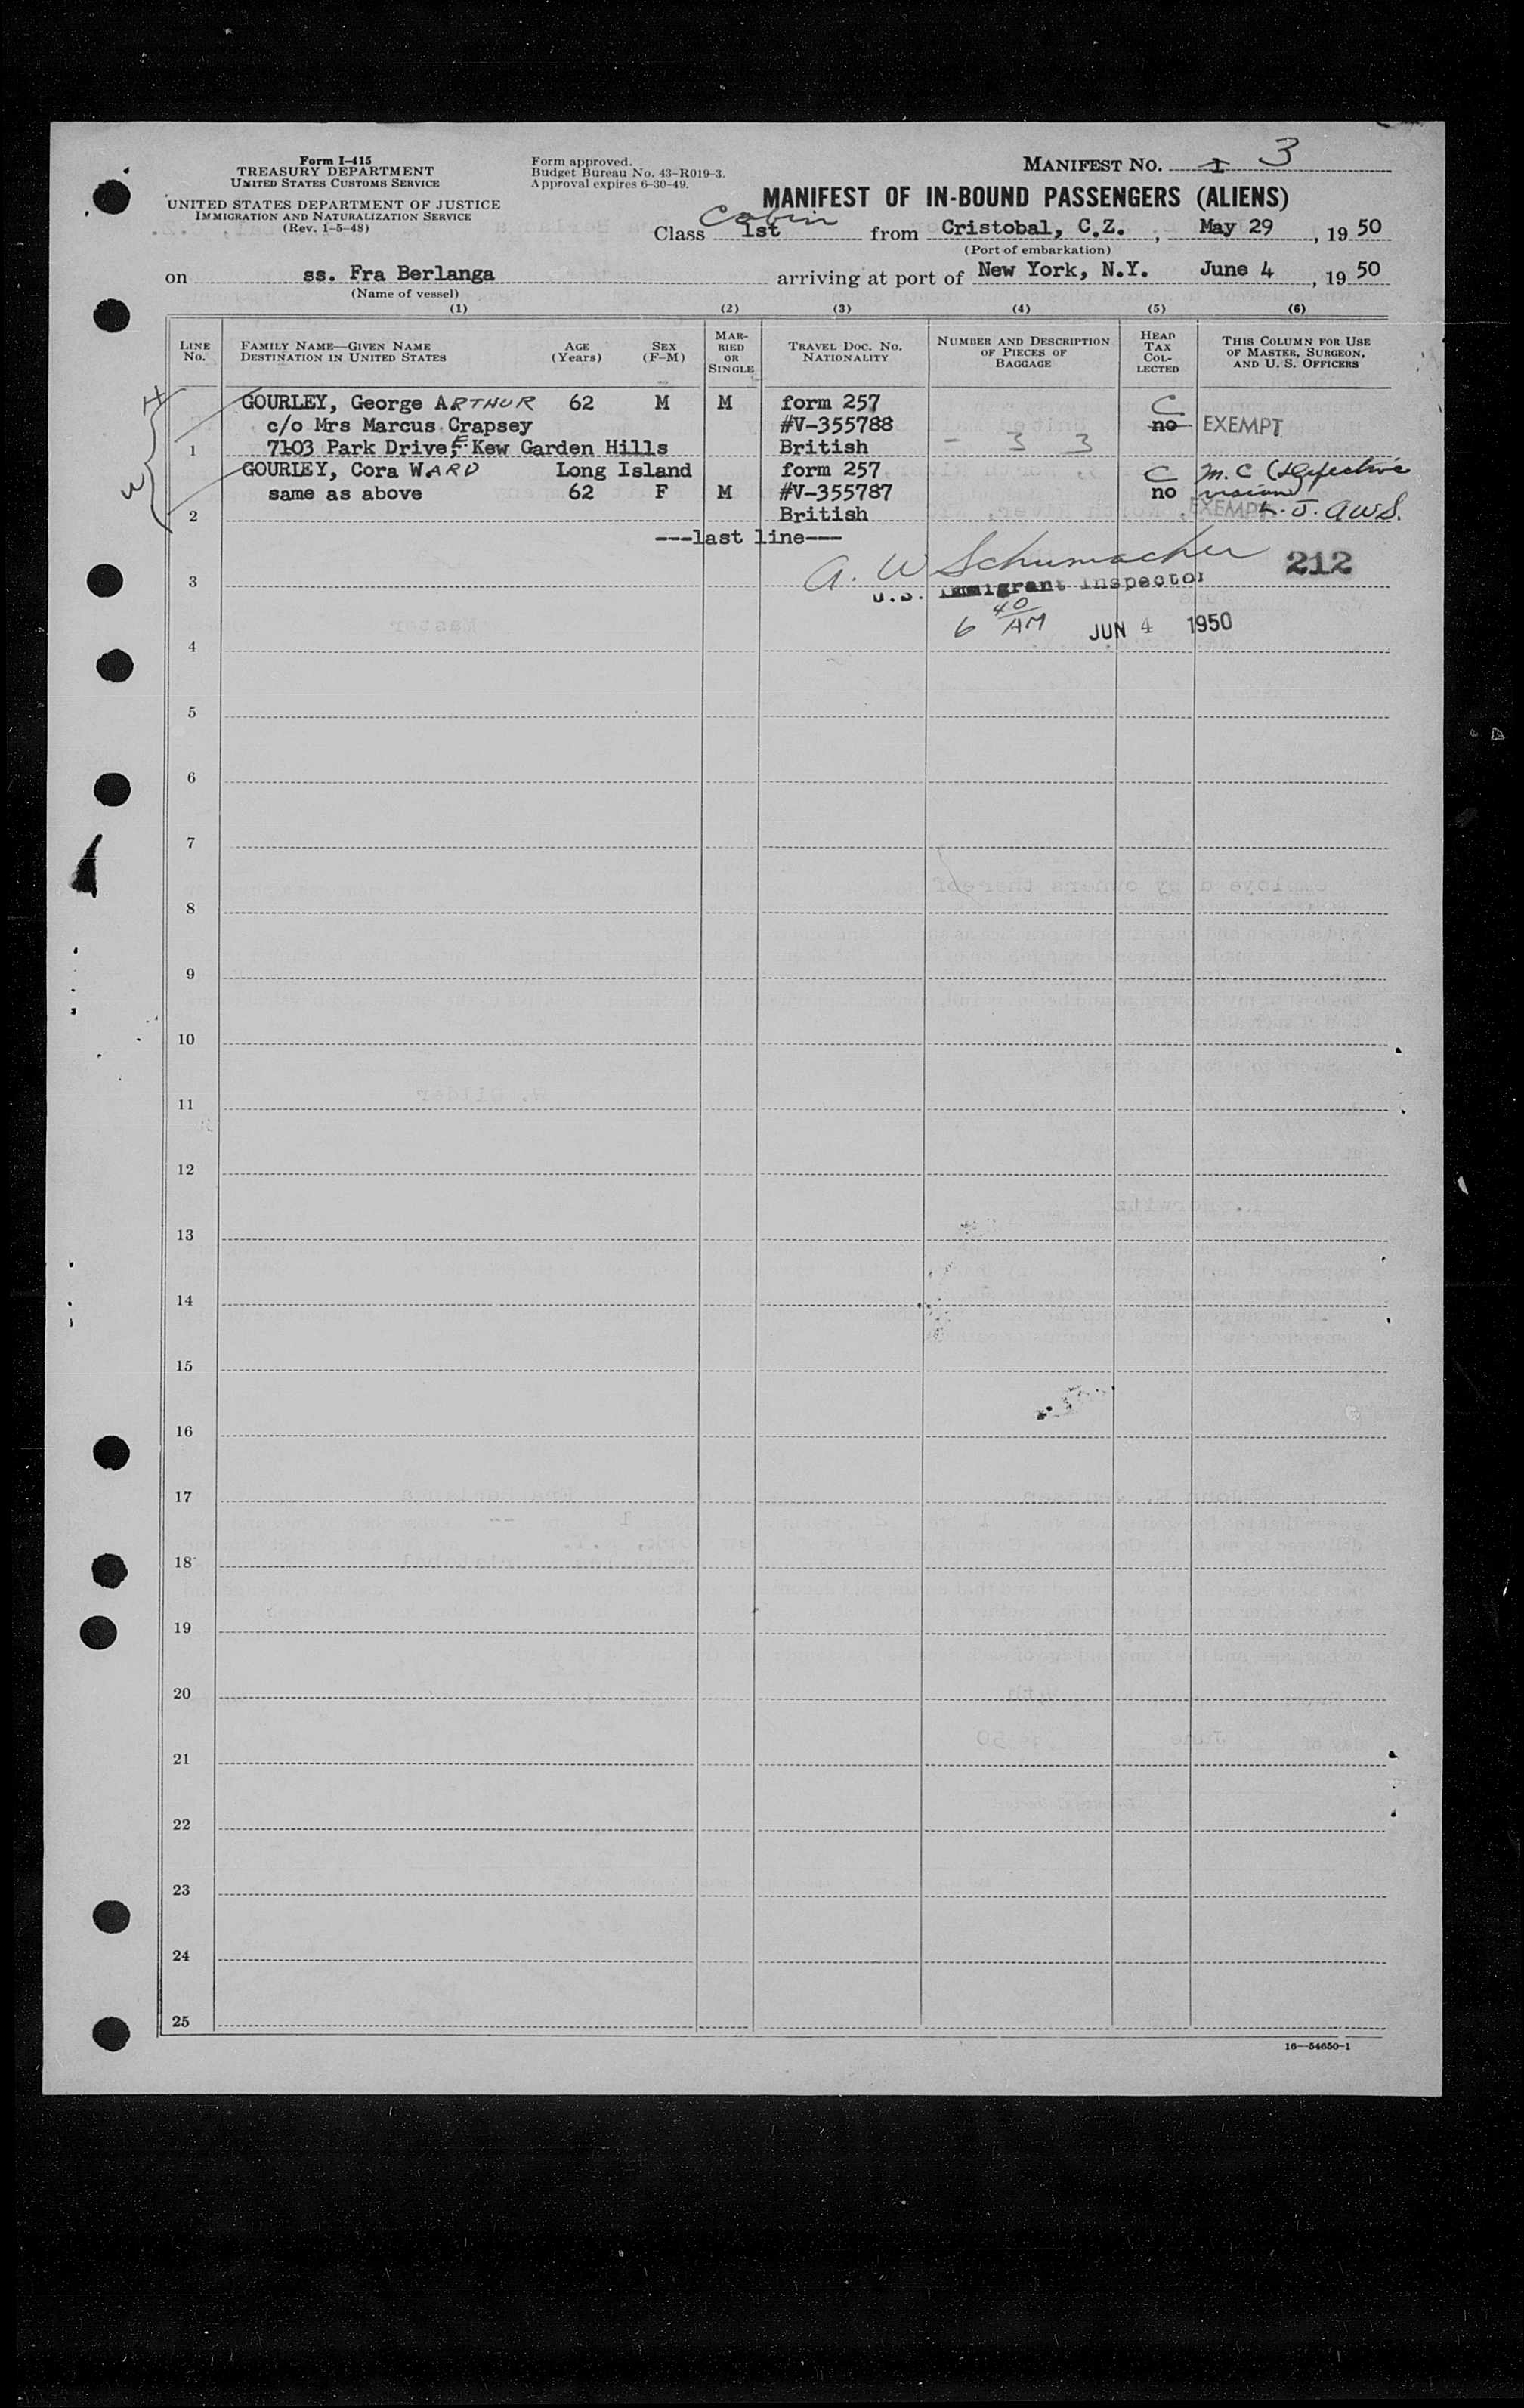 Form I-415
TREASURY DEPARTMENT
UNITED STATES CUSTOMS SERVICE
UNITED STATES DEPARTMENT OF JUSTICE
IMMIGRATION AND NATURALIZATION SERVICE
(Rev. 1-5-48)
Form approved.
Budget Bureau No. 43-R019-3.
Approval expires 6-30-49.
MANIFEST NO. 1 3
MANIFEST OF IN-BOUND PASSENGERS (ALIENS)
Cabin
Class 1st from Cristobal, C.Z., May 29, 19 50
(Port of embarkation)
on ss. Fra Berlanga arriving at port of New York, N.Y. June 4, 19 50
(Name of vessel)
(1) (2) (3) (4) (5) (6)
LINE No.
FAMILY NAME—GIVEN NAME
DESTINATION IN UNITED STATES
AGE (Years)
SEX (F-M)
MARRIED OR SINGLE
TRAVEL DOC. NO. NATIONALITY
NUMBER AND DESCRIPTION OF PIECES OF BAGGAGE
HEAD TAX COLLECTED
THIS COLUMN FOR USE OF MASTER, SURGEON, AND U. S. OFFICERS
H
W
GOURLEY, George ARTHUR 62 M M form 257 C
c/o Mrs Marcus Crapsey #V-355788 no EXEMPT
1 7103 Park Drive, E. Kew Garden Hills British - 3 3
GOURLEY, Cora WARD Long Island form 257 C M.C (defective
same as above 62 F M #V-355787 no vision)
2 British EXEMPT J. AWS.
---last line---
A. W Schumacher
3 U.S. Immigrant Inspector 212
6 40 AM JUN 4 1950
4
5
6
7
employed by owners thereof
8
9
10
11
12
13
14
15
16
17
18
19
20
21
22
23
24
25
16—54650-1